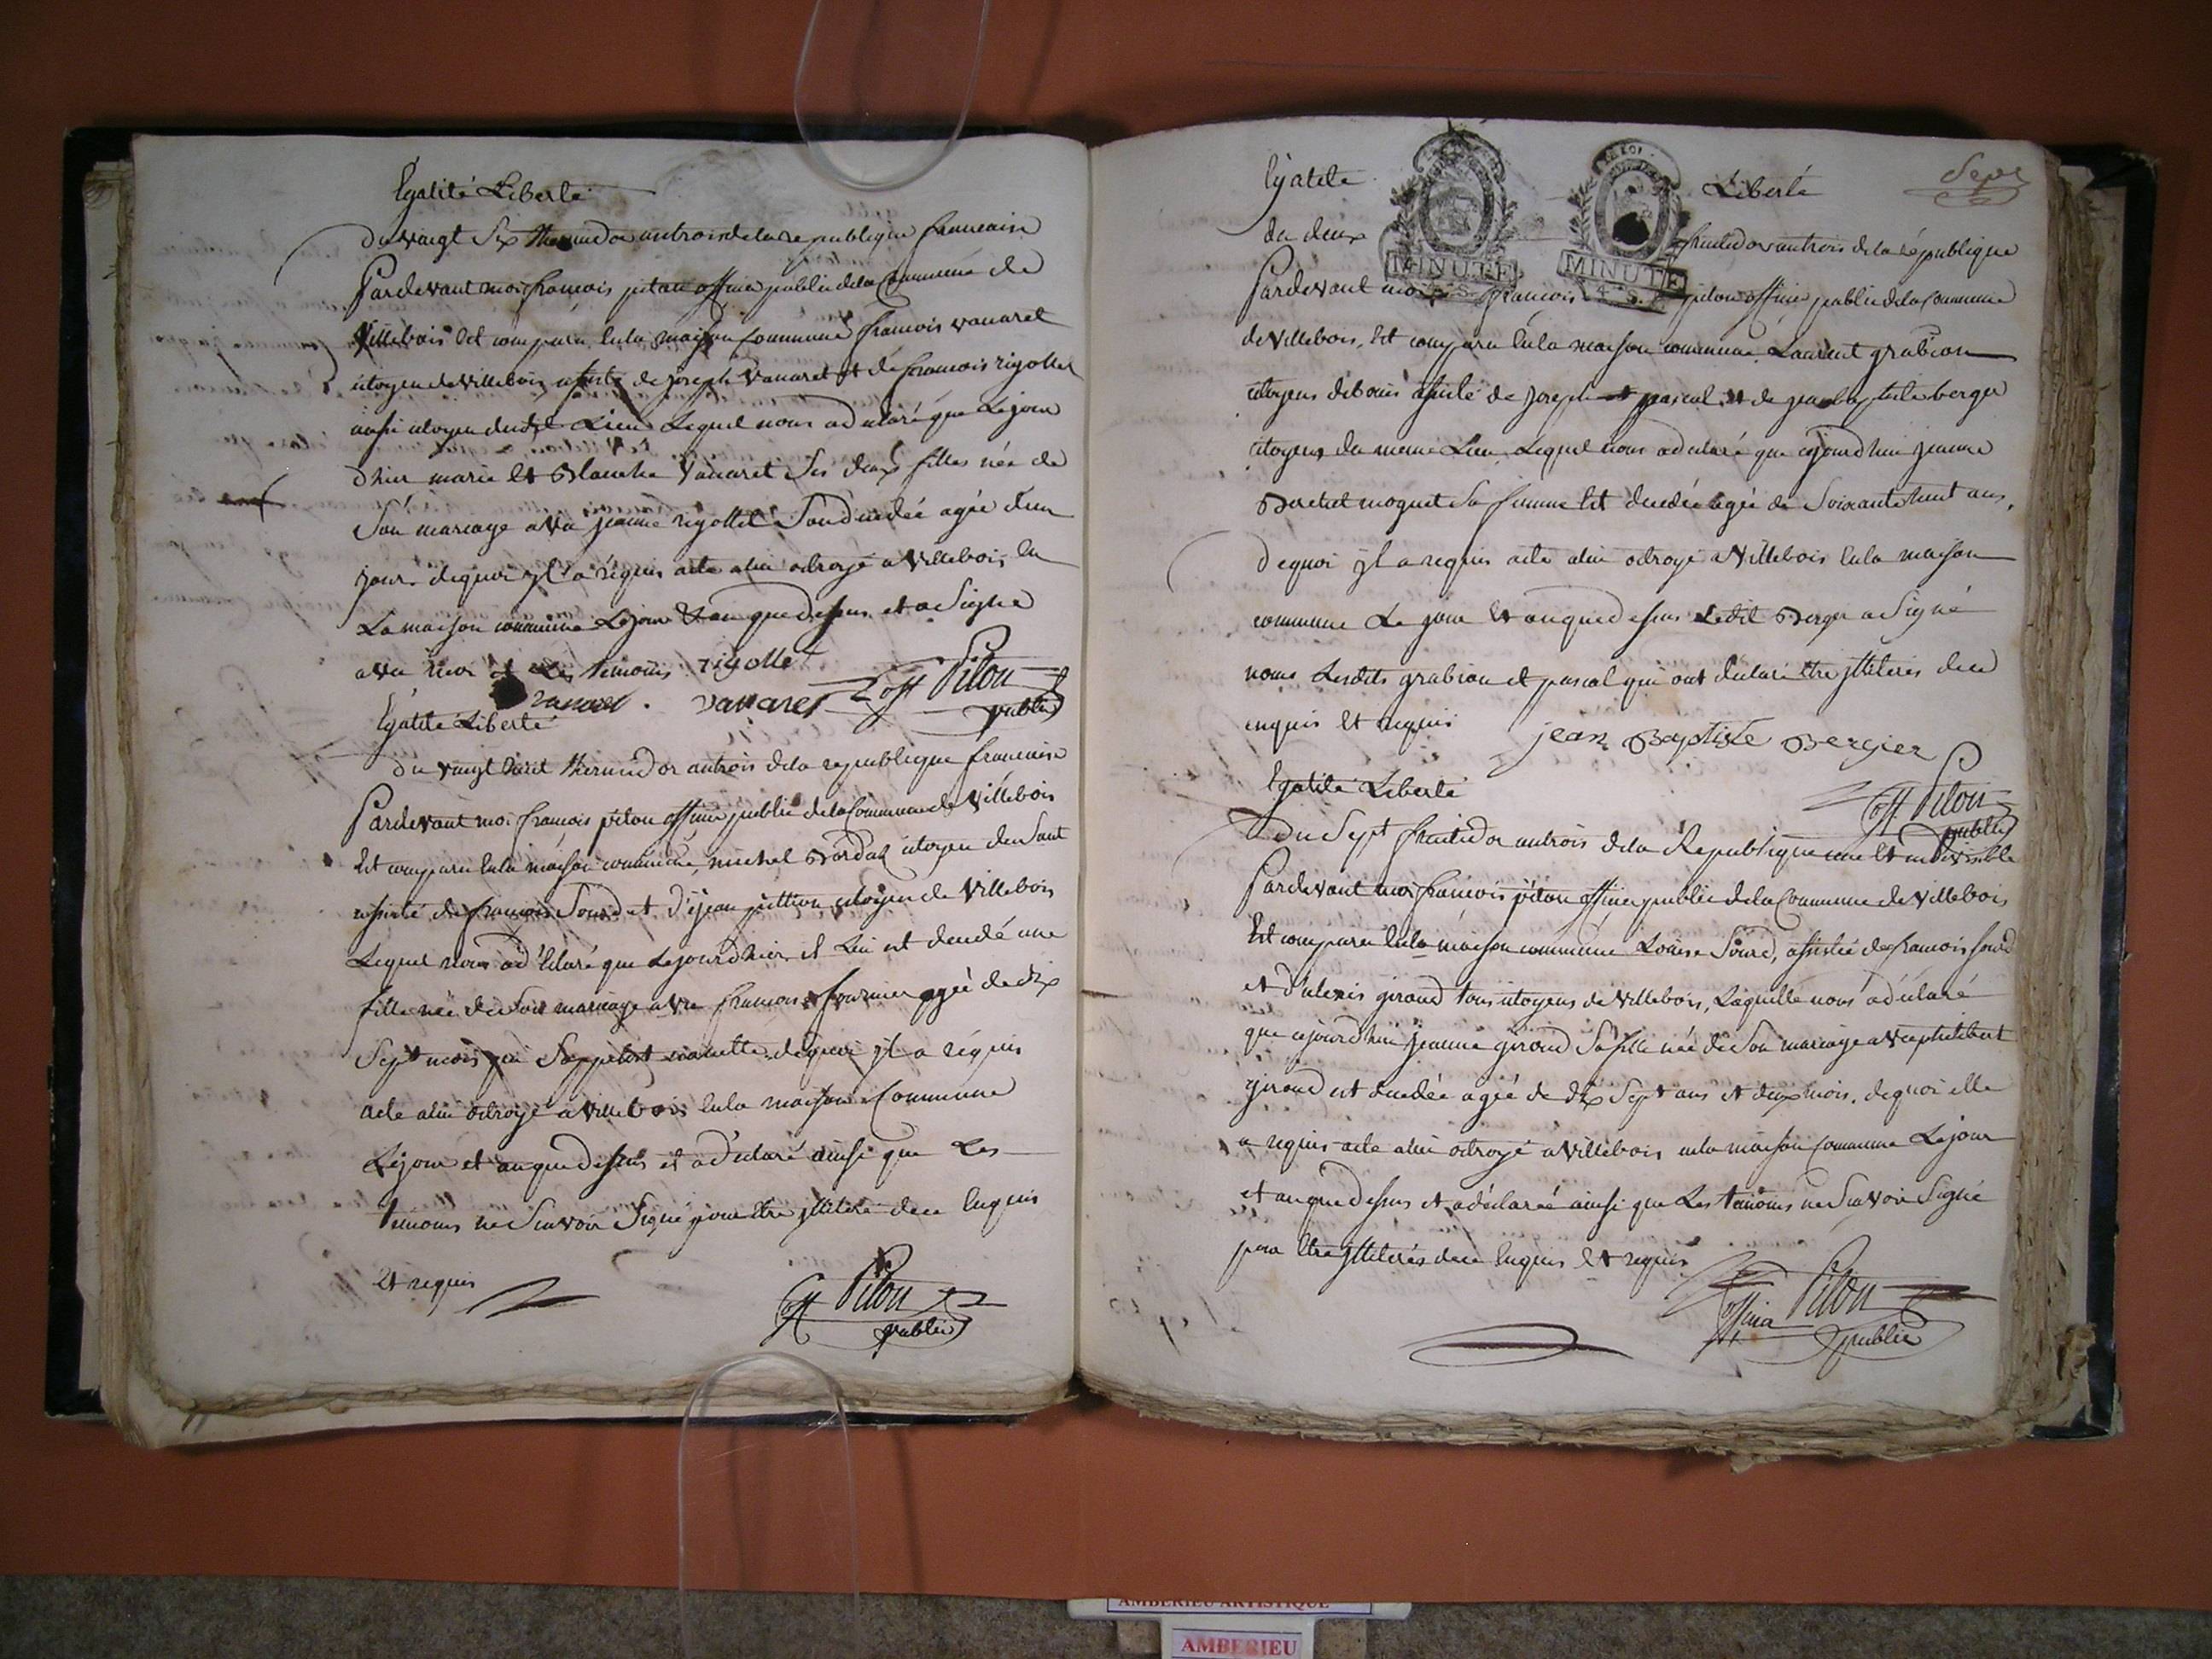 Egalité Liberté
du vingt Six thermidor an trois de la republique francaise
Pardevant moi francois piton officier public de la Commune de
Villebois Est comparu En la maison Commune francois vanaret
citoyen de Villebois assisté de joseph Vanaret et de francois rigollet
aussi citoyen dudit Lieu Lequel nous a declaré que Le jour
d'hier marie Et Blanche Vanaret Ses deux filles née de
Son mariage avec jeanne rigollet Sond decedée agée d'un
jour. dequoi yl a réquis acte a lui octroyé a Villebois En
La maison commune Le jour Et an que dessus et a Signé
avec moi et Les temoins rigollet
vanaret
off Piton
public
Egalité Liberté
du vingt huit thermidor an trois de la republique francaise
Pardevant moi francois piton officier public de la Commune de Villebois
Est comparu En la maison commune, michel Bordat citoyen
assisté de francois Sourd et d'ijean citoyen de Villebois
Lequel nous a déclaré que Le jourd'hier il Lui est decedé une
fille née de Son mariage avec francoise fournier agée de dix
Sept mois qui Sappeloit dequoi yl a réquis
acte a lui octroyé a Villebois En la maison Commune
Le jour et an que dessus et a déclaré ainsi que Les
temoins ne Scavoir Signé pour Etre yllitéré de ce Enquis
Et requis
off Piton
public
Egalité Liberté
Sept
MINUTE MINUTE
du deux fructidor an trois de la république
Pardevant moi francois piton officier public de la Commune
de Villebois, Est comparu En la maison commune Laurent grabion
citoyens de bouis assisté de joseph pascal et de jean baptiste berger
citoyens du meme Lieu Lequel nous a declaré que cejourd'hui jeanne
moguet Sa femme Est decedée agée de Soixante huit ans,
dequoi yl a requis acte a lui octroyé a Villebois En la maison
commune Le jour Et an que dessus Ledit Berger a Signé
nous Lesdits grabion et pascal qui ont declaré Etre yllitéres de ce
enquis Et requis jean Baptiste Bergier
off Piton
public
Egalité Liberté
Du Sept fructidor an trois de la Republique une Et indivisible
Pardevant moi francois piton officier public de la Commune de Villebois
Est comparu En la maison commune Louise Sourd, assistée de francois Sourd
et d'alexis giroud tous citoyens de Villebois, Laquelle nous a déclaré
que cejourd'hui jeanne giroud Sa fille née de Son mariage avec philibert
giroud est decedée agée de dix Sept ans et deux mois. dequoi elle
a requis acte a lui octroyé a Villebois en la maison commune Le jour
et an que dessus et a déclaré ainsi que Les temoins ne Scavoir Signé
pour Etre yllitérés de ce Enquis Et requis
officier Piton
public
AMBERIEU ARTISTIQUE
AMBERIEU